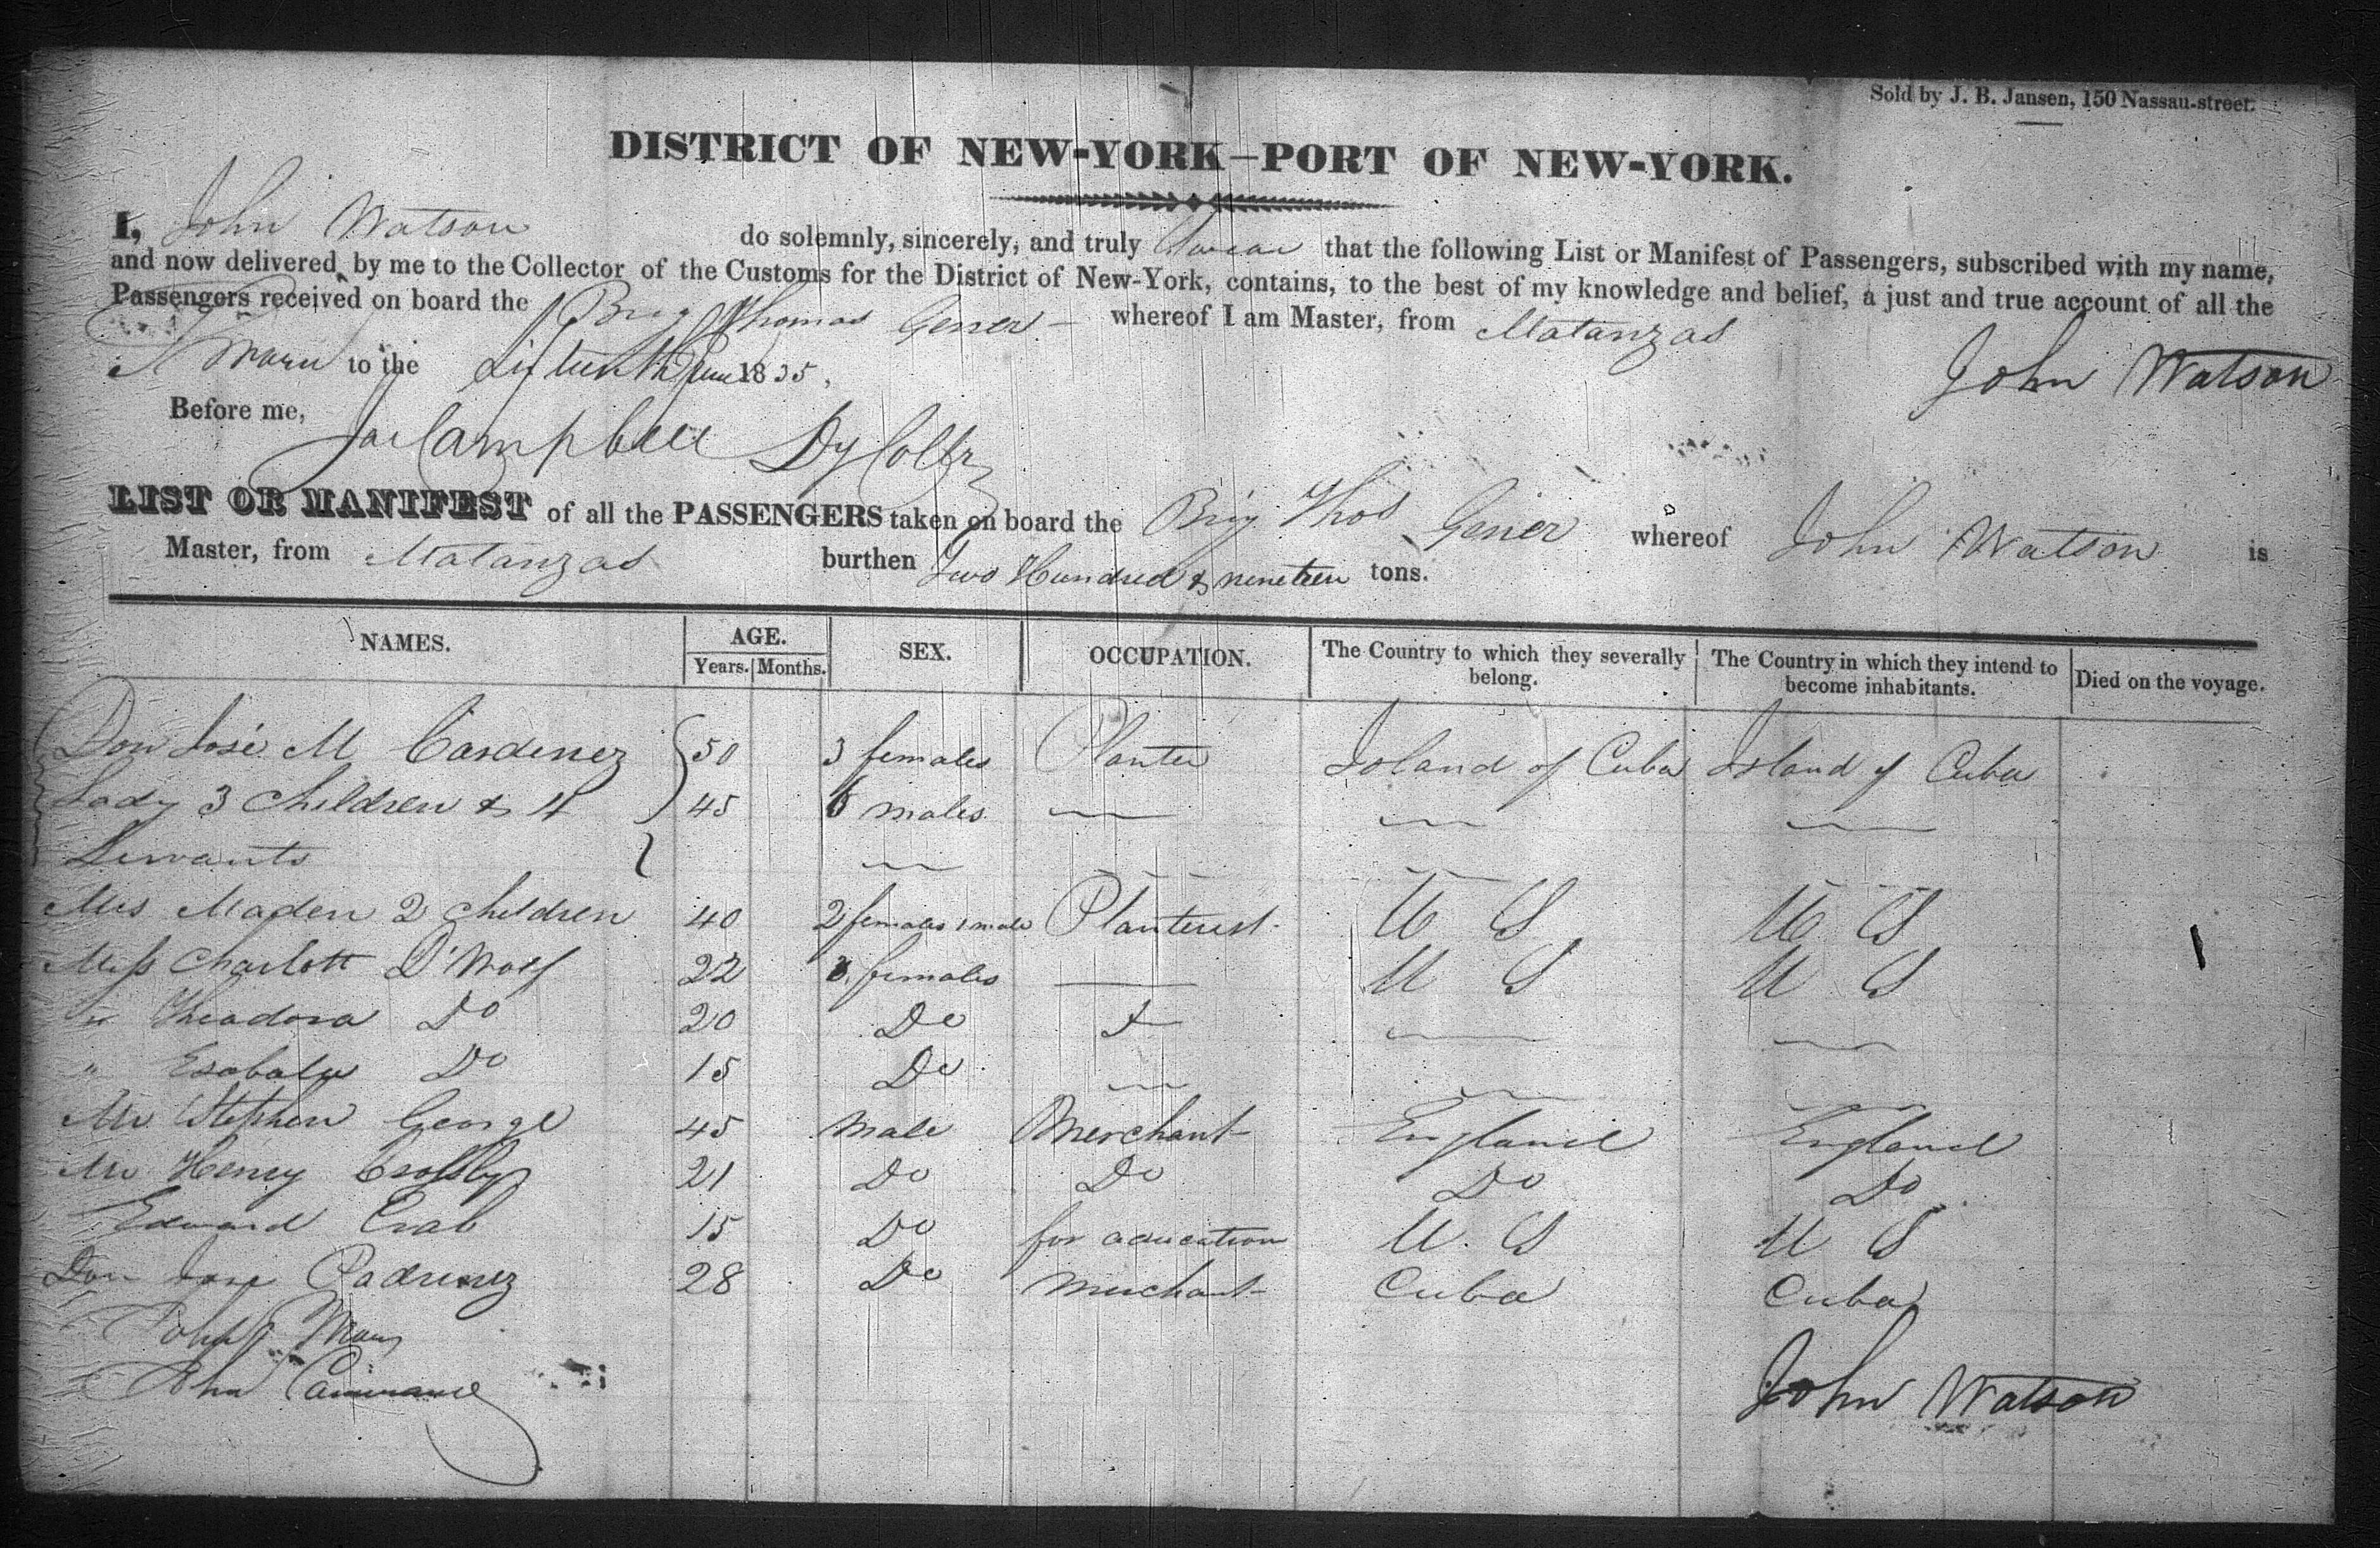 Sold by J. B. Jansen, 150 Nassau-street.
DISTRICT OF NEW-YORK—PORT OF NEW-YORK.
I, John Watson do solemnly, sincerely, and truly Swear that the following List or Manifest of Passengers, subscribed with my name,
and now delivered by me to the Collector of the Customs for the District of New-York, contains, to the best of my knowledge and belief, a just and true account of all the
Passengers received on board the Brig Thomas Gener whereof I am Master, from Matanzas
to the fifteenth June 1835, John Watson
Before me,
Campbell Dy Collr
LIST OR MANIFEST of all the PASSENGERS taken on board the Brig Thos Gener whereof John Watson is
Master, from Matanzas burthen Two Hundred & nineteen tons.
NAMES. AGE. Years. Months. SEX. OCCUPATION. The Country to which they severally belong. The Country in which they intend to become inhabitants. Died on the voyage.
Don José M Cardenez 50 3 females Planter Island of Cuba Island of Cuba
Lady 3 Children & 4 45 6 males
Servants
Mrs Maden 2 children 40 2 females 1 male U S U S
Miss Charlott D'Wolf 22 females U S U S
" Theadora Do 20 Do
" Do 15 Do
Mr Stephen George 45 male Merchant England England
Mr Henry Crossby 21 Do Do Do Do
Edward 15 Do for aducation U. S U S
Don Jose 28 Do Merchant Cuba Cuba
John
John
John Watson